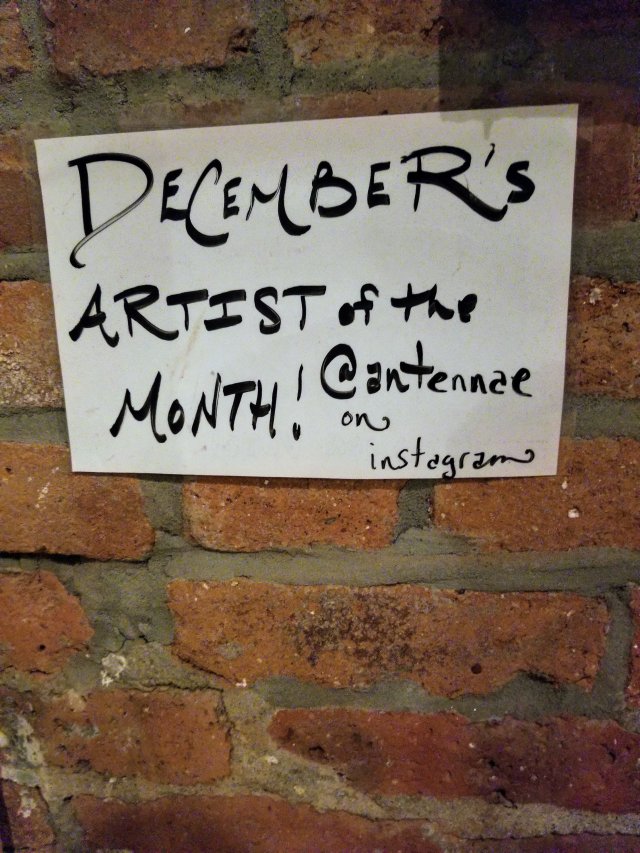 DECEMBER's
ARTIST of the
MONTH! @antennae
on
instagram